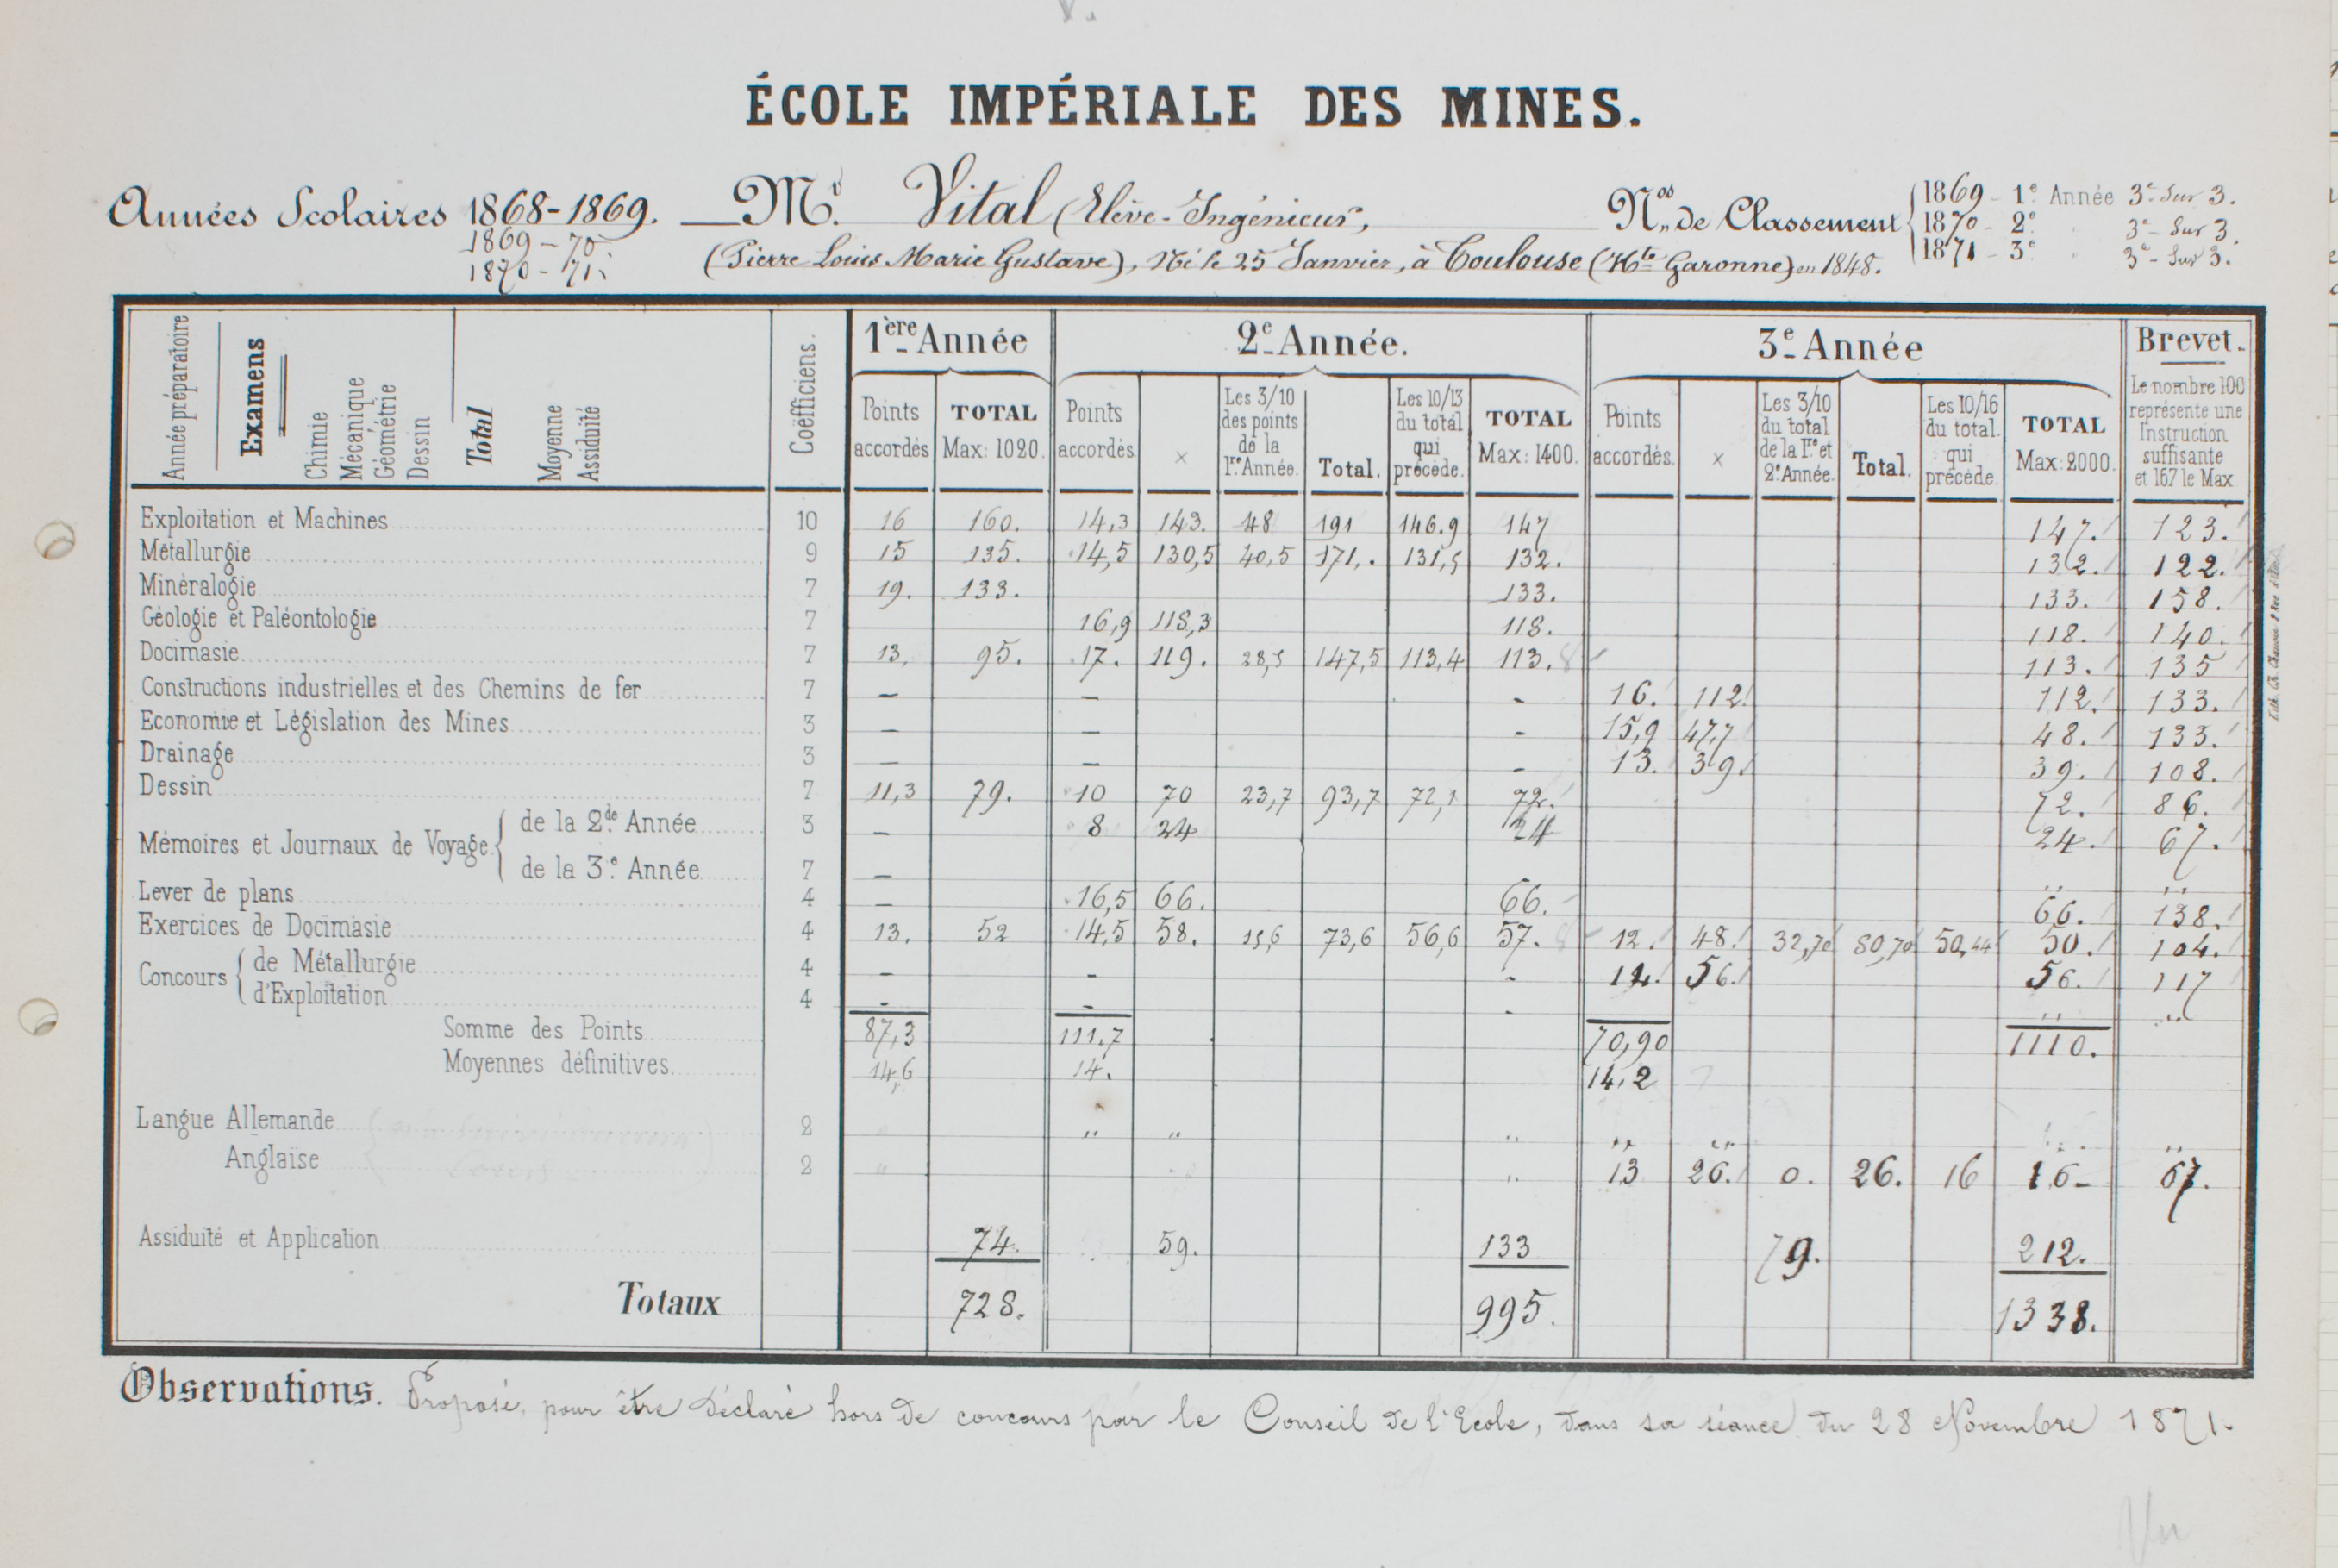 ÉCOLE IMPÉRIALE DES MINES.
Années Scolaires 1868-1869. Mr. Vital (Elève-Ingénieur, Nos de Classement 1869 - 1e Année 3e Sur 3.
1869 - 70 1870 - 2e " 3e - Sur 3.
1870 - 71. (Pierre Louis Marie Gustave), Né le 25 Janvier, à Toulouse (Hte Garonne) en 1848. 1871 - 3e " 3e - Sur 3.
Année préparatoire Examens Chimie Mécanique Géométrie Dessin Total Moyenne Assiduité Coëfficiens.
1ère Année 2e Année. 3e Année Brevet.
Points accordés TOTAL Max: 1020. Points accordés × Les 3/10 des points de la 1re Année. Total. Les 10/13 du total qui précède. TOTAL Max: 1400. Points accordés. × Les 3/10 du total de la 1re et 2e Année. Total. Les 10/16 du total qui précède. TOTAL Max: 2000. Le nombre 100 représente une Instruction suffisante et 167 le Max
Exploitation et Machines 10 16 160. 14,3 143. 48 191 146.9 147 147. 123.
Métallurgie 9 15 135. 14,5 130,5 40,5 171,. 131,5 132. 132. 122.
Minéralogie 7 19. 133. 133. 133. 158.
Géologie et Paléontologie 7 16,9 118,3 118. 118. 140.
Docimasie 7 13. 95. 17. 119. 28,5 147,5 113,4 113. 113. 135
Constructions industrielles et des Chemins de fer 7 — — - 16. 112. 112. 133.
Economie et Législation des Mines 3 — — - 15,9 47,7 48. 133.
Drainage 3 — — - 13. 39. 39. 108.
Dessin 7 11,3 79. 10 70 23,7 93,7 72,1 72. 72. 86.
Mémoires et Journaux de Voyage de la 2de Année 3 — 8 24 24 24. 67.
de la 3e Année 7 — " "
Lever de plans 4 — 16,5 66. 66. 66. 138.
Exercices de Docimasie 4 13. 52 14,5 58. 15,6 73,6 56,6 57. 12. 48. 32,70 80,70 50,44 50. 104.
Concours de Métallurgie 4 - - - 14. 56. 56. 117
d'Exploitation 4 - - - " "
Somme des Points 87,3 111.7 70,90 1110.
Moyennes définitives. 14,6 14. 14,2
Langue Allemande 2 " " " " " " " "
Anglaise 2 " " " 13 26. 0. 26. 16 16- 67.
Assiduité et Application 74. 59. 133 79. 212.
Totaux 728. 995. 1338.
Observations. Proposé, pour être déclaré hors de concours par le Conseil de l'Ecole, dans sa séance du 28 Novembre 1871.
Vu